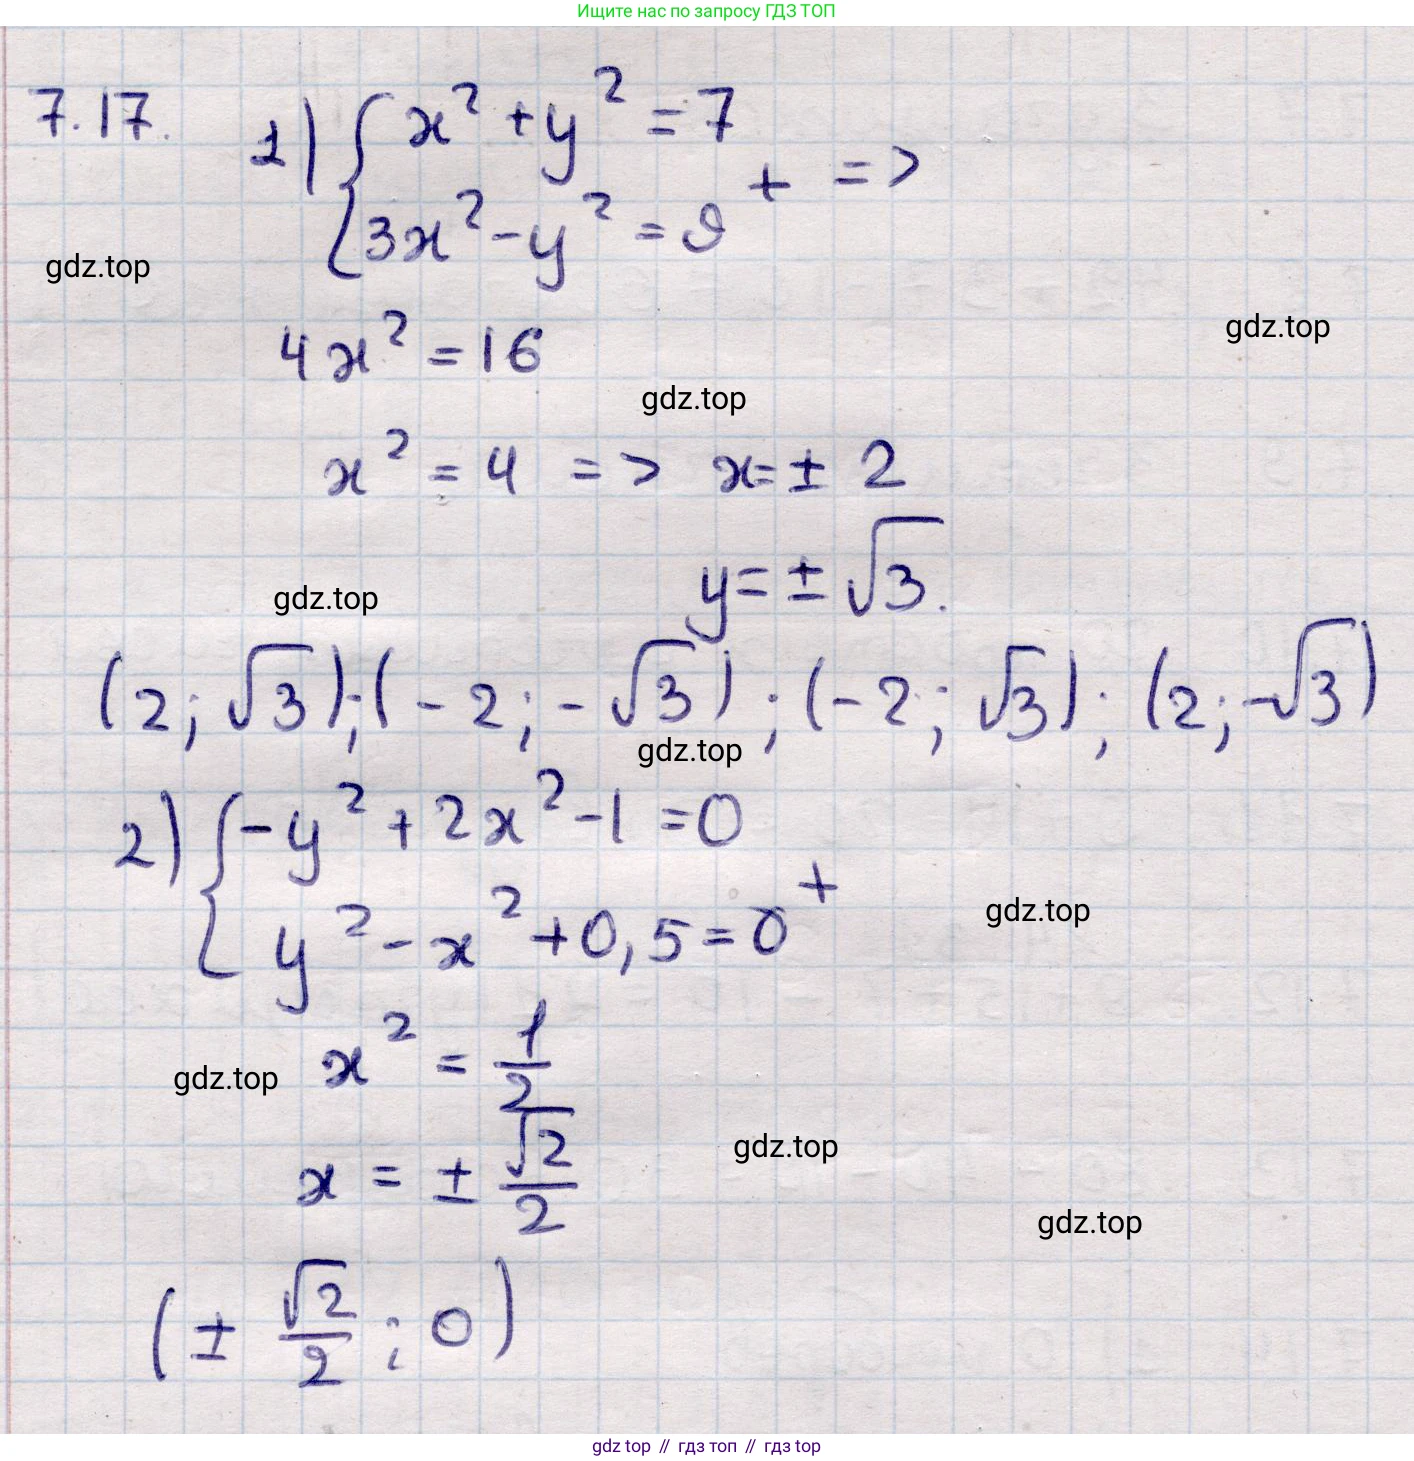 Ищите нас по запросу ГДЗ ТОП
7.17. 1) { x² + y² = 7
3x² - y² = 9 + =>
gdz.top
gdz.top
4x² = 16
gdz.top
x² = 4 => x = ± 2
y = ± √3.
gdz.top
(2; √3); (-2; -√3); (-2; √3); (2; -√3)
gdz.top
2) { -y² + 2x² - 1 = 0
y² - x² + 0,5 = 0 +
gdz.top
x² = 1/2
gdz.top
x = ± √2/2
gdz.top
gdz.top
(± √2/2 ; 0)
gdz top // гдз топ // гдз top